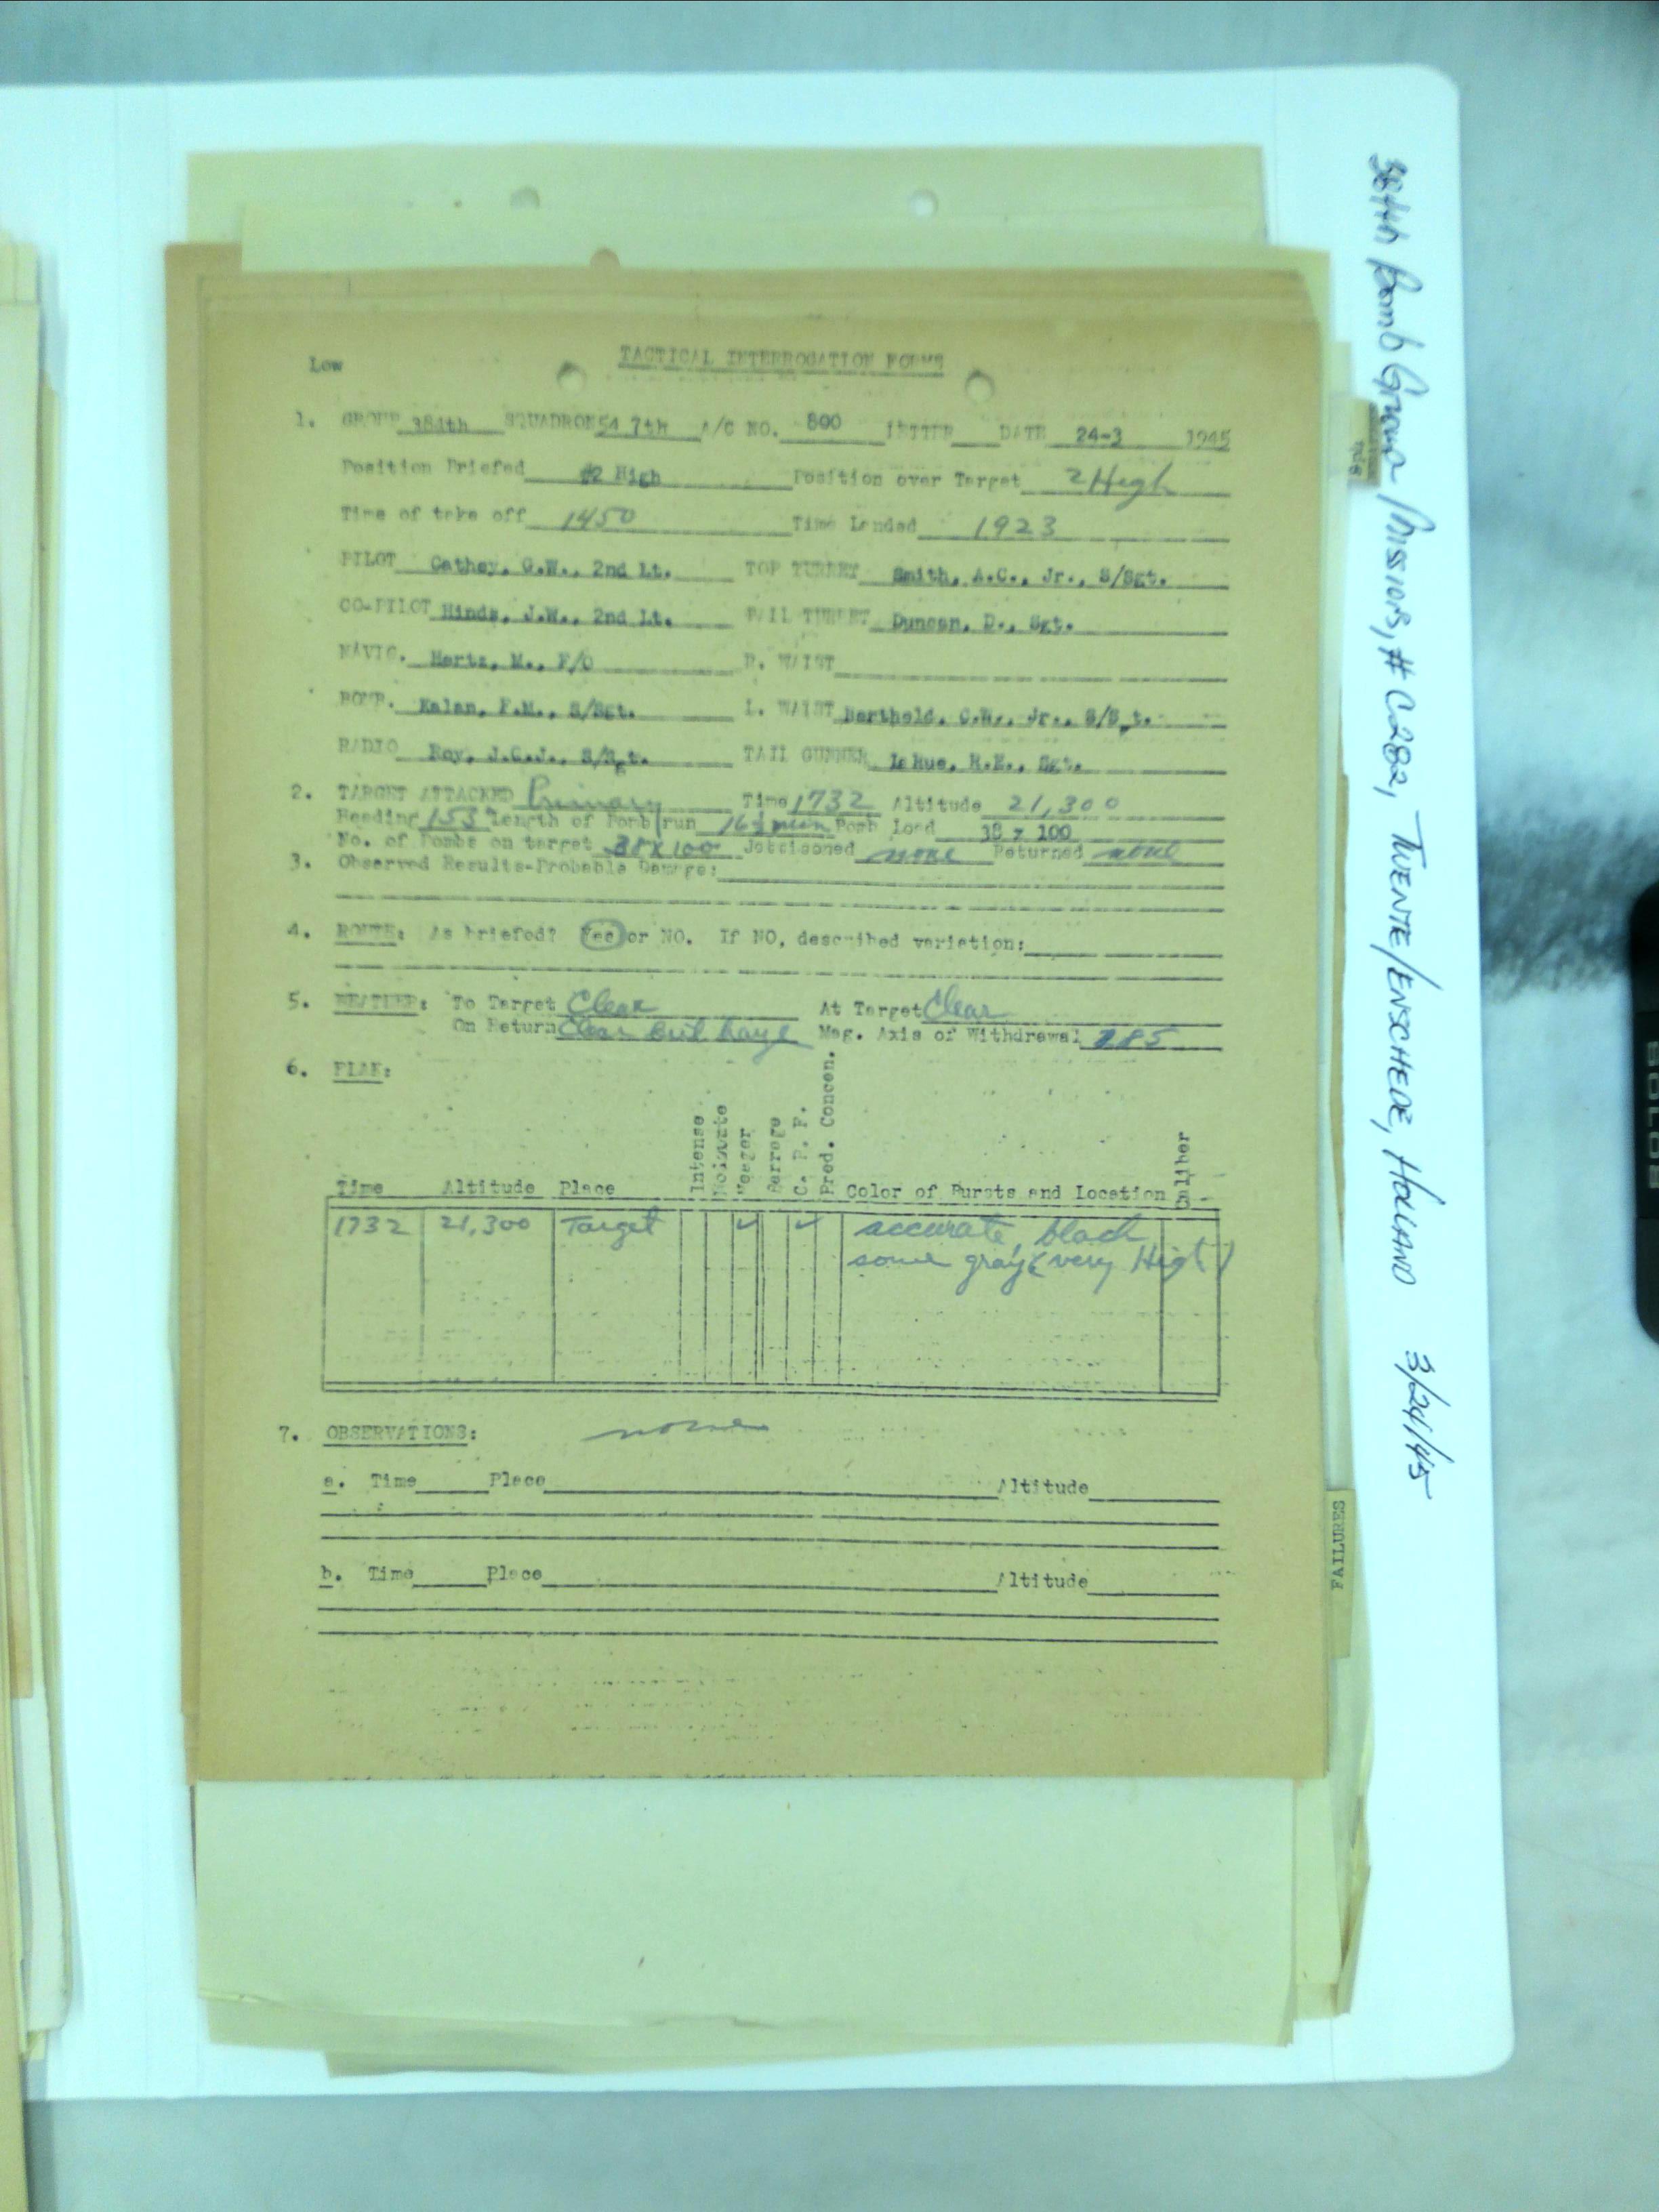 Low
TACTICAL INTERROGATION FORMS
1. GROUP 384th SQUADRON 547th A/C NO. 800 LETTER DATE 24-3 1945
Position Briefed #2 High Position over Target 2 High
Time of take off 1450 Time Landed 1923
PILOT Cathey, G.W., 2nd Lt. TOP TURRET Smith, A.C., Jr., S/Sgt.
CO-PILOT Hinds, J.W., 2nd Lt. BALL TURRET Duncan, D., Sgt.
NAVIG. Hertz, M., F/O R. WAIST
BOMB. Kalan, F.M., S/Sgt. L. WAIST Berthold, C.W., Jr., S/Sgt.
RADIO Roy, J.C.J., S/Sgt. TAIL GUNNER LaRue, R.E., Sgt.
2. TARGET ATTACKED Primary Time 1732 Altitude 21,300
Heading 153° Length of Bomb run 16½ min Bomb Load 38 x 100
No. of Bombs on target 38 x 100 Jettisoned none Returned none
3. Observed Results-Probable Damage:
4. ROUTE: As briefed? Yes or NO. If NO, described variation:
5. WEATHER: To Target Clear At Target Clear
On Return Clear but haze Mag. Axis of Withdrawal 285
6. FLAK:
Time Altitude Place Intense Moderate Meager Barrage C. P. F. Pred. Concen. Color of Bursts and Location Caliber
1732 21,300 Target ✓ ✓ accurate, black,
some gray (very High)
7. OBSERVATIONS: none
a. Time Place Altitude
b. Time Place Altitude
FAILURES
384th Bomb Group Mission, # C282, TWENTE/ENSCHEDE, HOLLAND 3/24/45